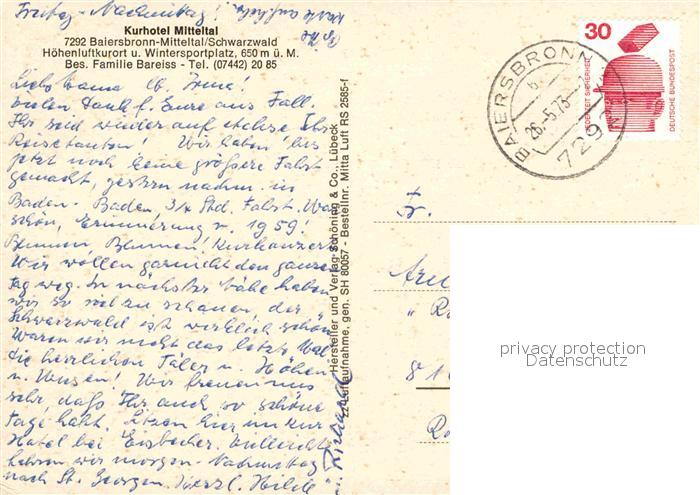 Freitag - Nachmittag!
Kurhotel Mitteltal
7292 Baiersbronn-Mitteltal/Schwarzwald
Höhenluftkurort u. Wintersportplatz, 650 m ü. M.
Bes. Familie Bareiss - Tel. (07442) 20 85
Liebe Mama lb. Irma!
Vielen Dank f. Eure aus Fall.
Ihr seid wieder auf Ihr
Reisetanten! Wir haben bis
jetzt noch keine größere Fahrt
gemacht, gestern nachm. in
Baden-Baden. 3/4 Std. Fahrt. War
schön, Erinnerung v. 1959!
Blumen, Blumen! Kurkonzert
Wir wollen garnicht den ganzen
Tag weg. In nächster Nähe haben
wir so viel zu schauen, der
Schwarzwald ist wirklich schön
Waren wir nicht das letzte Mal
die herrlichen Täler u. Höhen
u. Wiesen! Wir freuen uns
sehr daß Ihr auch so schöne
Tage habt. Sitzen hier im Kur
Hotel bei Eisbecher. Vielleicht
fahren wir morgen Nachmittag
nach St. Georgen. Herzl. Hilde
u. Richard
Hersteller und Verlag Schöning & Co., Lübeck
Luftaufnahme, gen. SH 80057 - Bestellnr. Mitta Luft RS 2585-f
30
JEDERZEIT SICHERHEIT
DEUTSCHE BUNDESPOST
BAIERSBRONN
26.-5.73
729
Fr.
81
privacy protection
Datenschutz